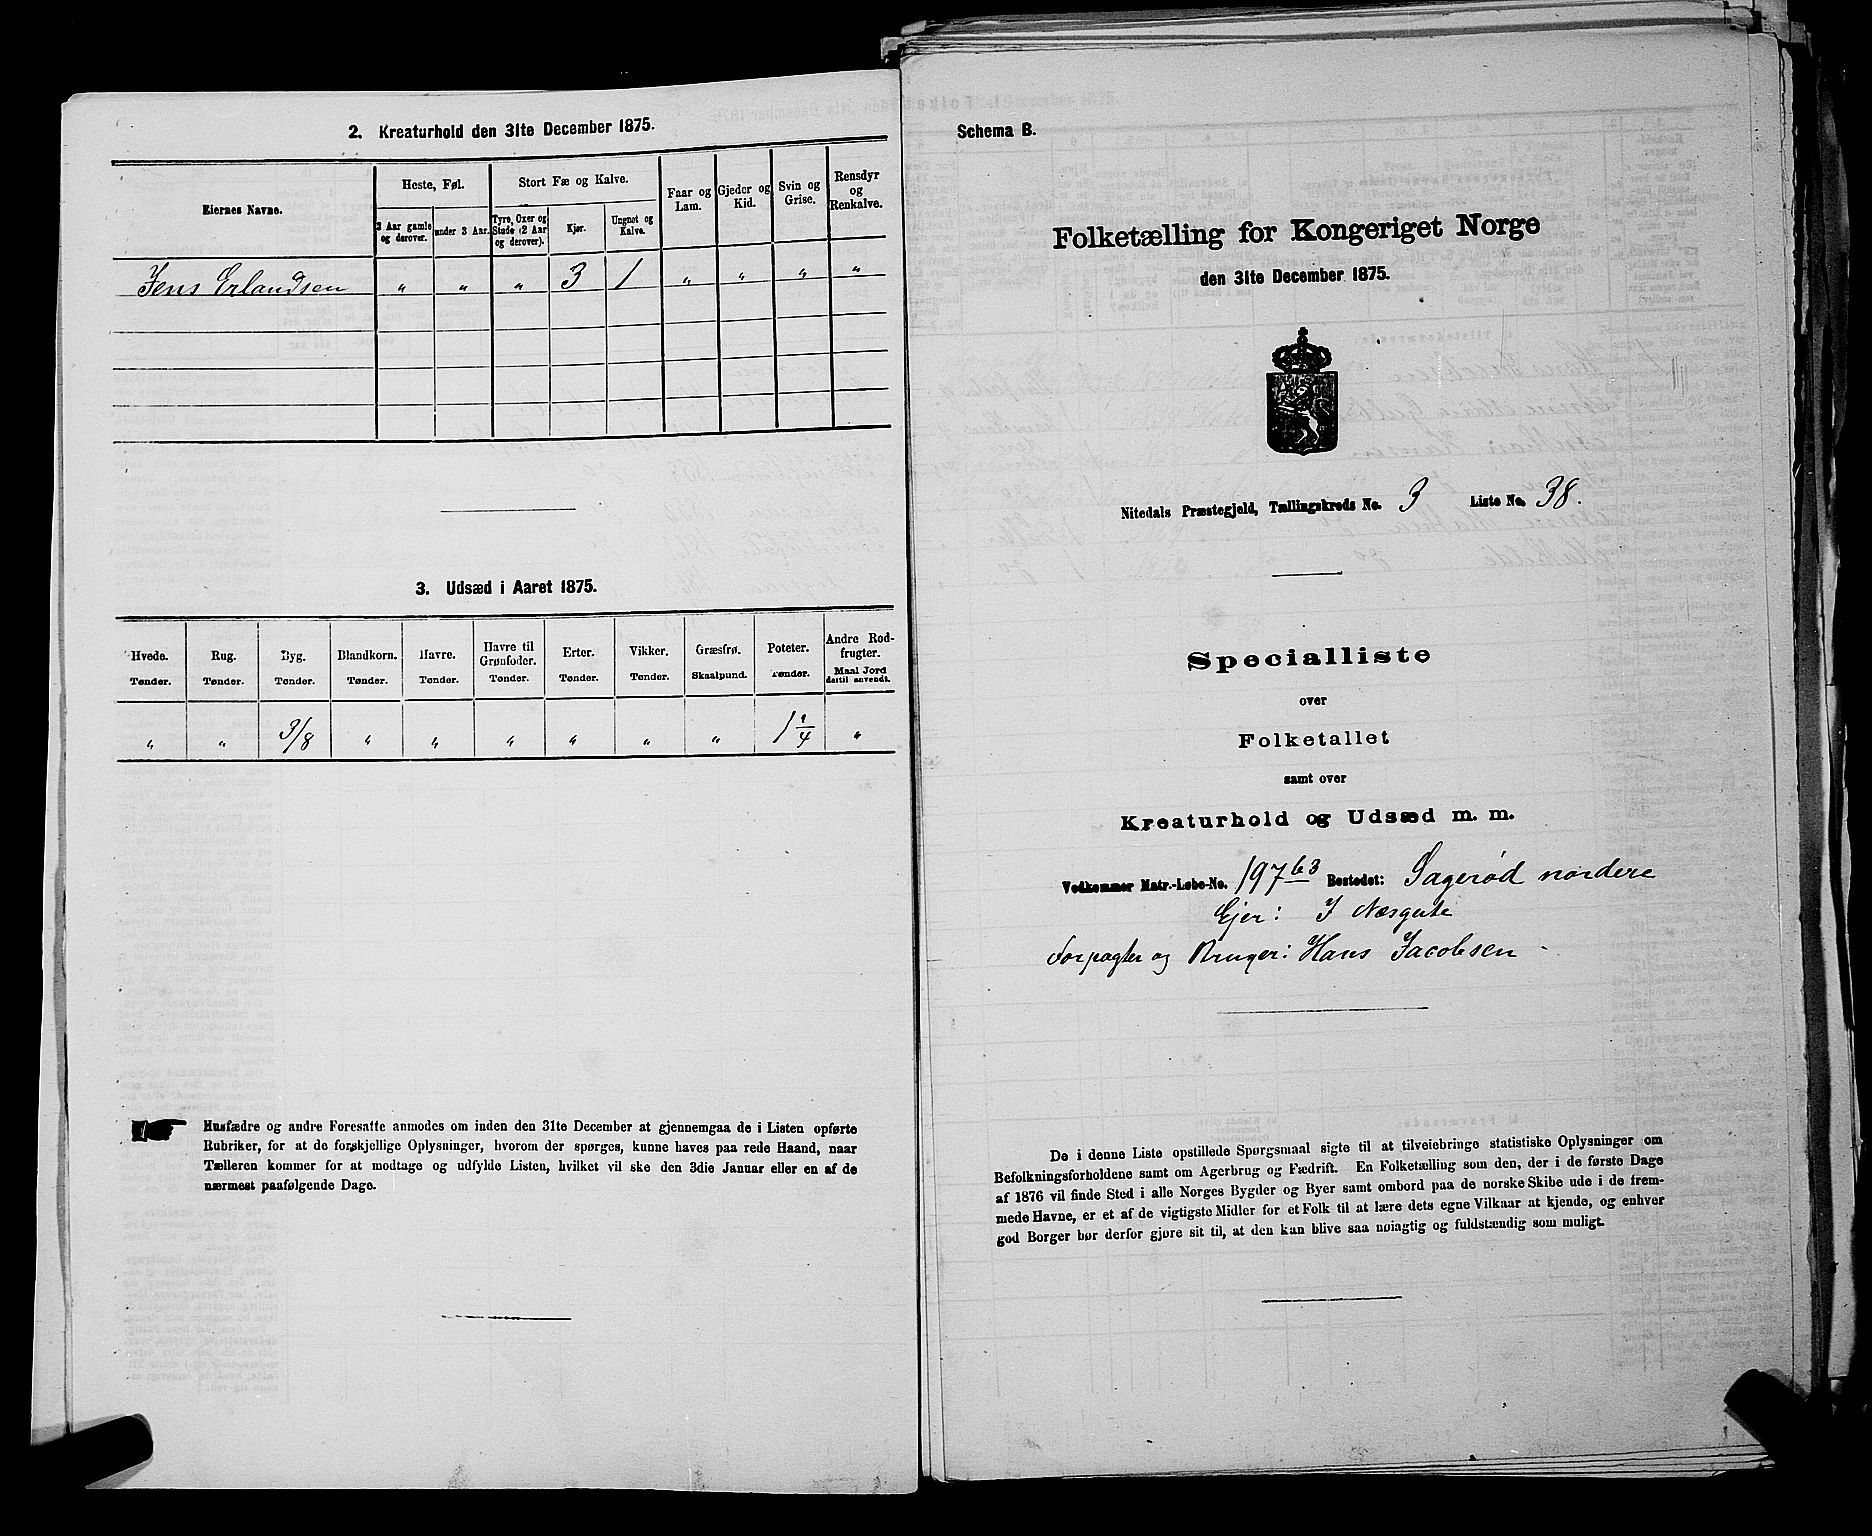 2. Kreaturhold den 31te December 1875.
Eiernes Navne.
Heste, Føl.
Stort Fæ og Kalve.
Faar og Lam.
Gjeder og Kid.
Svin og Grise.
Rensdyr og Renkalve.
3 Aar gamle og derover.
under 3 Aar.
Tyre, Oxer og Stude (2 Aar og derover).
Kjør.
Ungnøt og Kalve.
Jens Erlandsen " " " 3 1 " " " "
3. Udsæd i Aaret 1875.
Hvede. Rug. Byg. Blandkorn. Havre. Havre til Grønfoder. Erter. Vikker. Græsfrø. Poteter. Andre Rodfrugter.
Tønder. Tønder. Tønder. Tønder. Tønder. Tønder. Tønder. Tønder. Skaalpund. Tønder. Maal Jord dertil anvendt.
" " 3/8 " " " " " " 1 1/4 "
Husfædre og andre Foresatte anmodes om inden den 31te December at gjennemgaa de i Listen opførte
Rubriker, for at de forskjellige Oplysninger, hvorom der spørges, kunne haves paa rede Haand, naar
Tælleren kommer for at modtage og udfylde Listen, hvilket vil ske den 3die Januar eller en af de
nærmest paafølgende Dage.
Schema B.
Folketælling for Kongeriget Norge
den 31te December 1875.
Nitedals Præstegjeld, Tællingskreds No. 3 Liste No. 38.
Specialliste
over
Folketallet
samt over
Kreaturhold og Udsæd m. m.
Vedkommer Matr.-Løbe-No. 197 b3 Bostedet: Sagerød nordere
Ejer: J
Forpagter og Bruger: Hans Jacobsen
De i denne Liste opstillede Spørgsmaal sigte til at tilveiebringe statistiske Oplysninger om
Befolkningsforholdene samt om Agerbrug og Fædrift. En Folketælling som den, der i de første Dage
af 1876 vil finde Sted i alle Norges Bygder og Byer samt ombord paa de norske Skibe ude i de frem-
mede Havne, er et af de vigtigste Midler for et Folk til at lære dets egne Vilkaar at kjende, og enhver
god Borger bør derfor gjøre sit til, at den kan blive saa nøiagtig og fuldstændig som muligt.